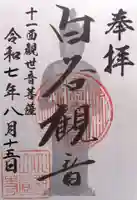 奉拝
白衣観音
十一面観世音菩薩
令和七年八月十五日